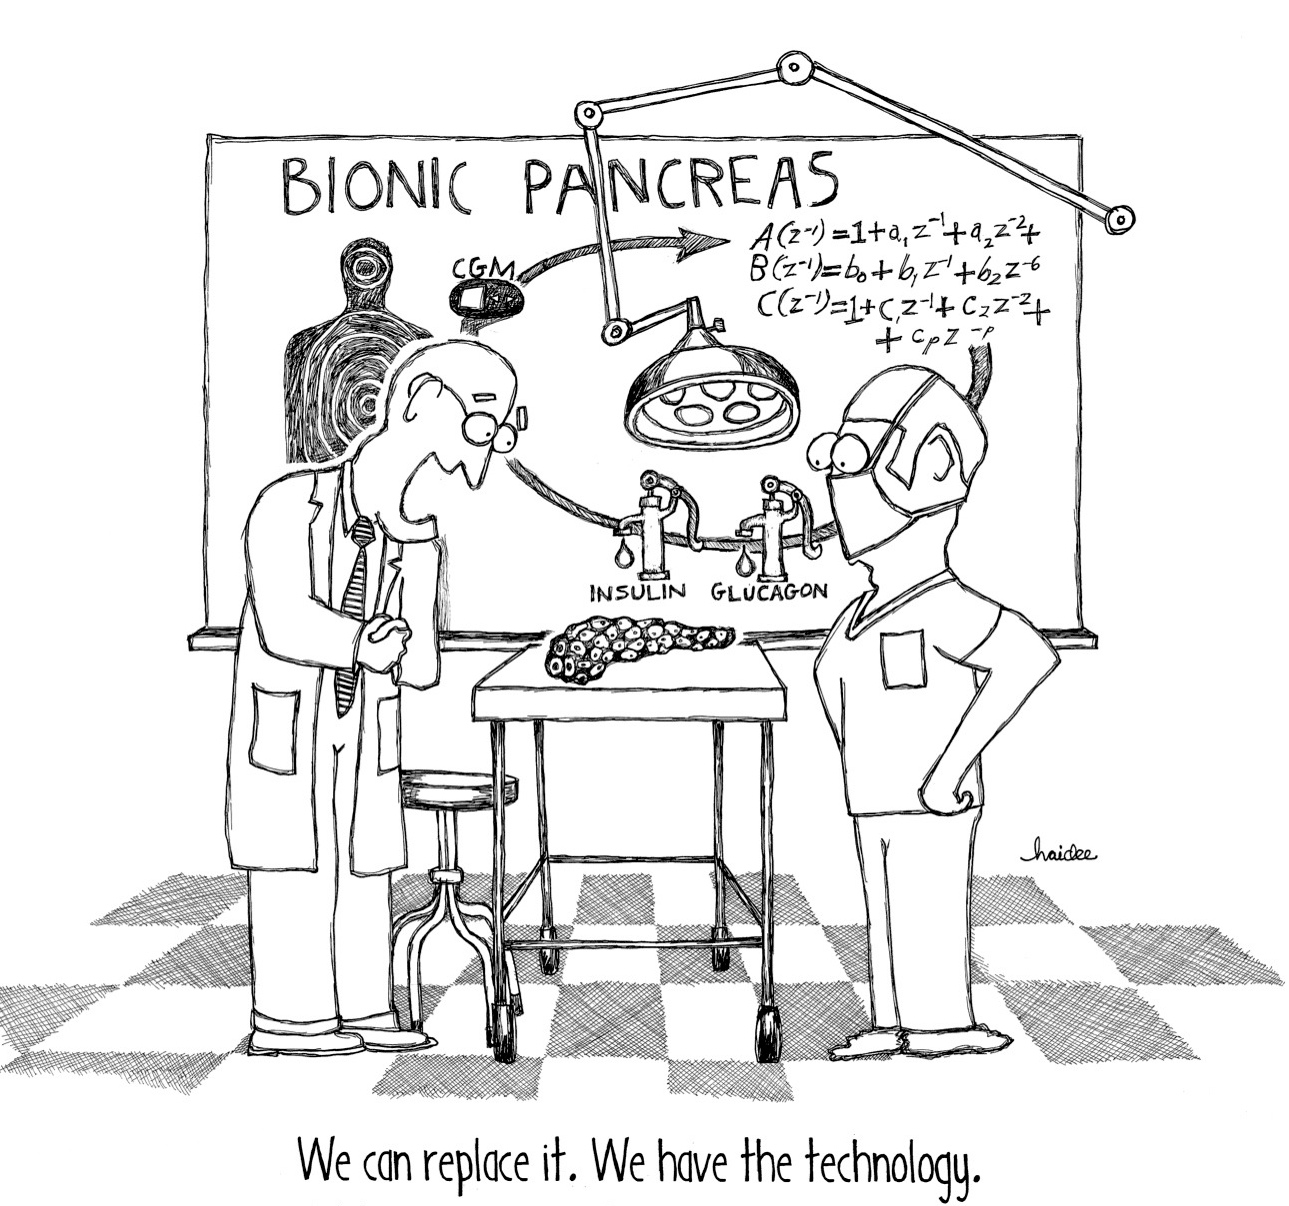 BIONIC PANCREAS
CGM
A(z⁻¹)=1+a₁z⁻¹+a₂z⁻²+
B(z⁻¹)=b₀+b₁z⁻¹+b₂z⁻⁶
C(z⁻¹)=1+c₁z⁻¹+c₂z⁻²+
+cₚz⁻ᵖ
INSULIN GLUCAGON
haidee
We can replace it. We have the technology.